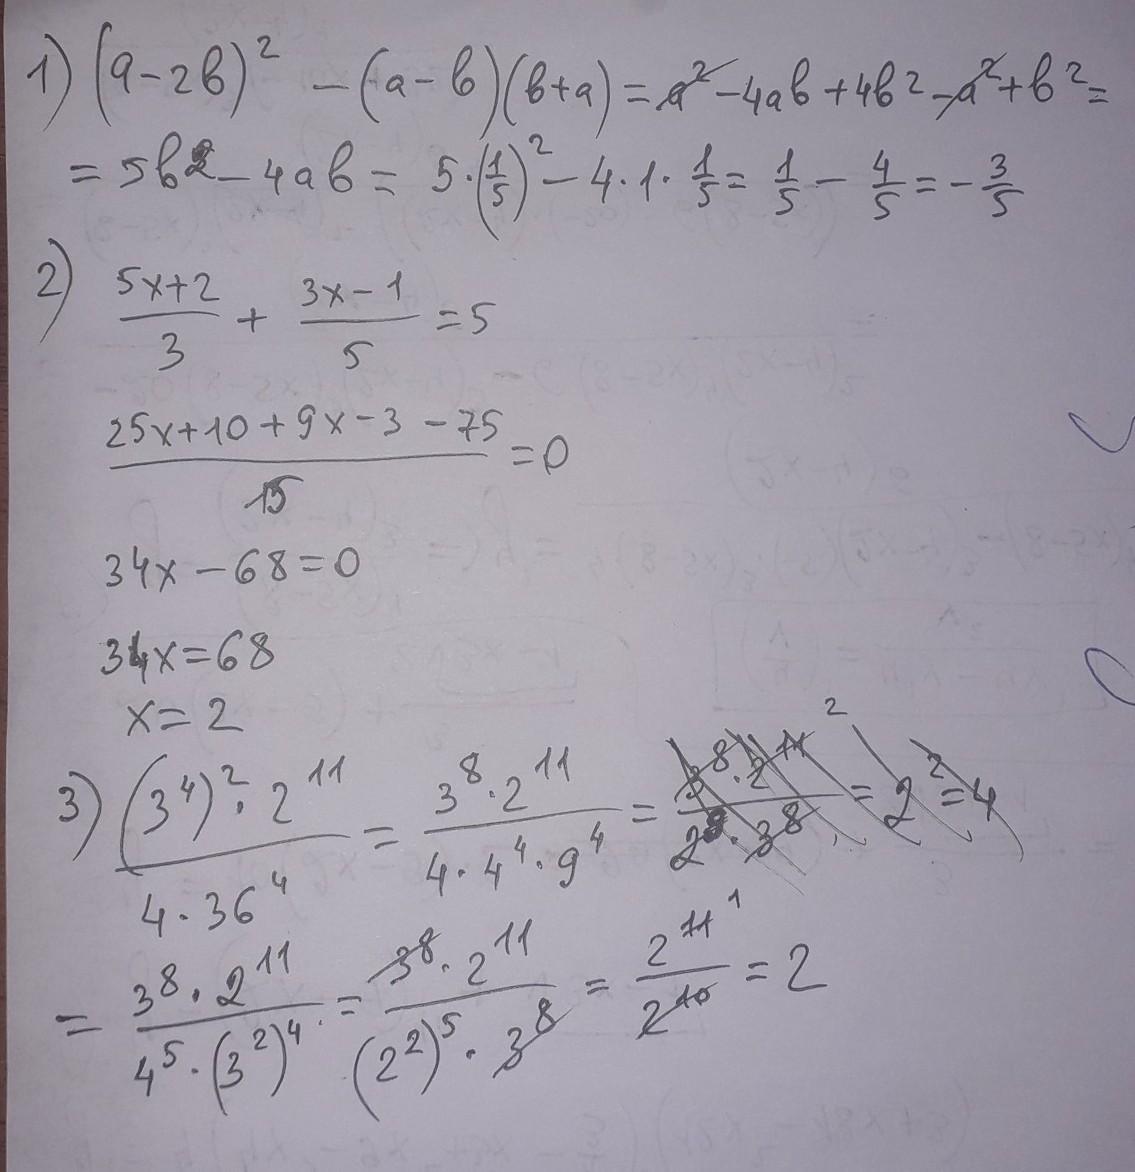 1) (a-2b)² - (a-b)(b+a) = a² - 4ab + 4b² - a² + b² =
= 5b² - 4ab = 5·(1/5)² - 4·1·1/5 = 1/5 - 4/5 = -3/5
2) (5x+2)/3 + (3x-1)/5 = 5
(25x+10+9x-3-75)/15 = 0
34x - 68 = 0
34x = 68
x = 2
3) ((3⁴)²·2¹¹)/(4·36⁴) = (3⁸·2¹¹)/(4·4⁴·9⁴) =
= (3⁸·2¹¹)/(4⁵·(3²)⁴) = (3⁸·2¹¹)/((2²)⁵·3⁸) = 2¹¹/2¹⁰ = 2